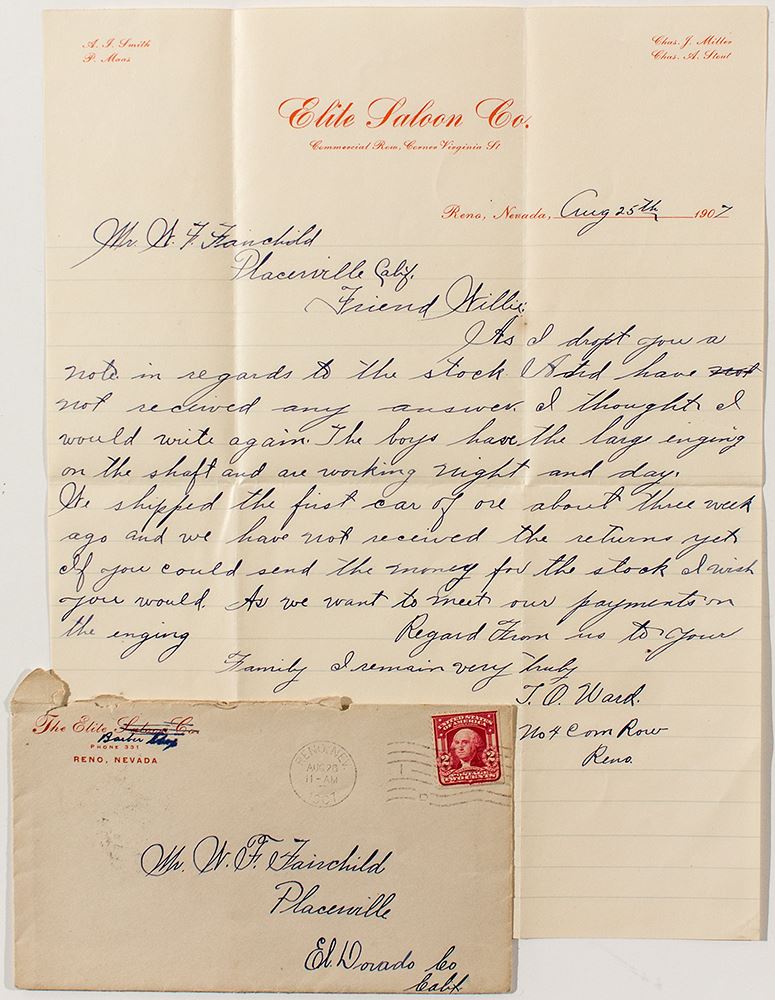 A. J. Smith
P. Maas
Chas. J. Miller
Chas. A. Stout
Elite Saloon Co.
Commercial Row, Corner Virginia St
Reno, Nevada, Aug 25th 1907
Mr. W. F. Fairchild
Placerville Calif.
Friend Willie;
As I dropt you a
note in regards to the stock And have not
not received any answer. I thought I
would write again. The boys have the large enging
on the shaft and are working night and day.
We shipped the first car of ore about three week
ago and we have not received the returns yet
If you could send the money for the stock I wish
you would. As we want to meet our payments on
the enging Regard From us to your
Family I remain very truly
T. O. Ward.
No 4 Com Row
Reno.
The Elite Saloon Co.
Barber Shop
PHONE 331
RENO, NEVADA
RENO, NEV.
AUG 26
11-AM
1907
UNITED STATES
OF AMERICA
2 2
POSTAGE
TWO CENTS
Mr. W. F. Fairchild
Placerville
El Dorado Co
Calif